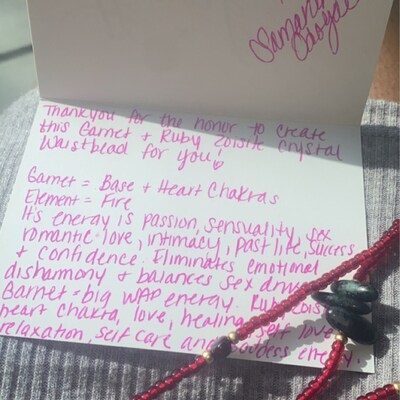 Thankyou for the honor to create
this Garnet + Ruby Zoisite Crystal
Waistbead for you! ♡
Garnet = Base + Heart Chakras
Element = Fire
It's energy is passion, sensuality, sex
romantic love, intimacy, past life, success
+ confidence. Eliminates emotional
disharmony + balances sex drive
Garnet = big WAP energy. Ruby Zois
heart chakra, love, healing, self love
relaxation, self care and goddess energy.